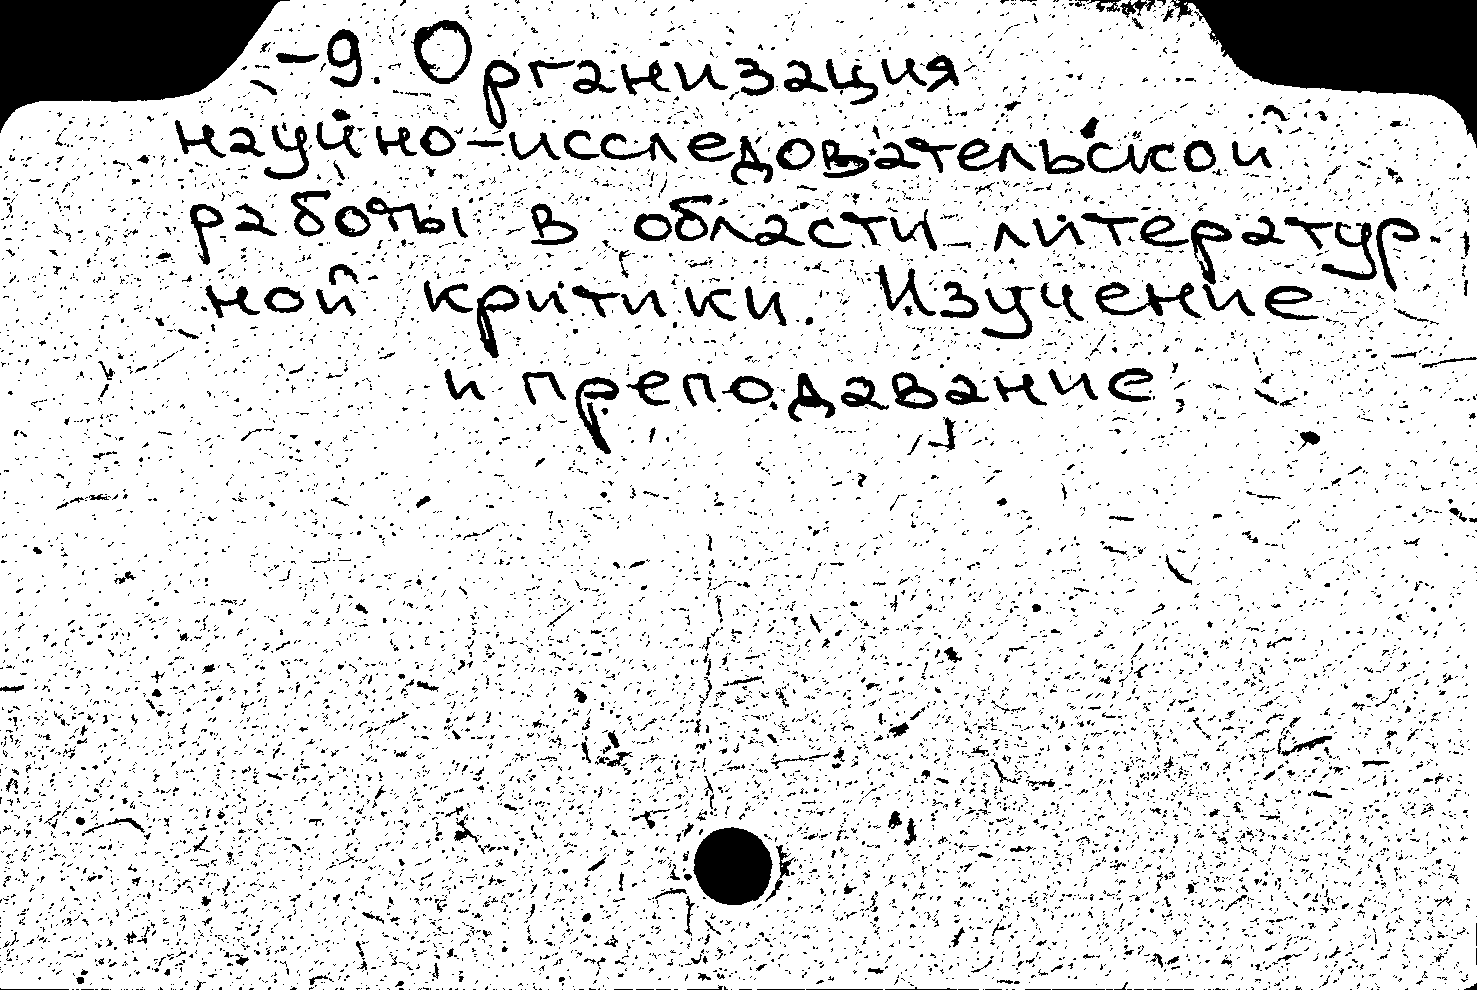 -9. Организация
научно-исследовательской
работы в области литератур-
ной критики. Изучение
и преподавание